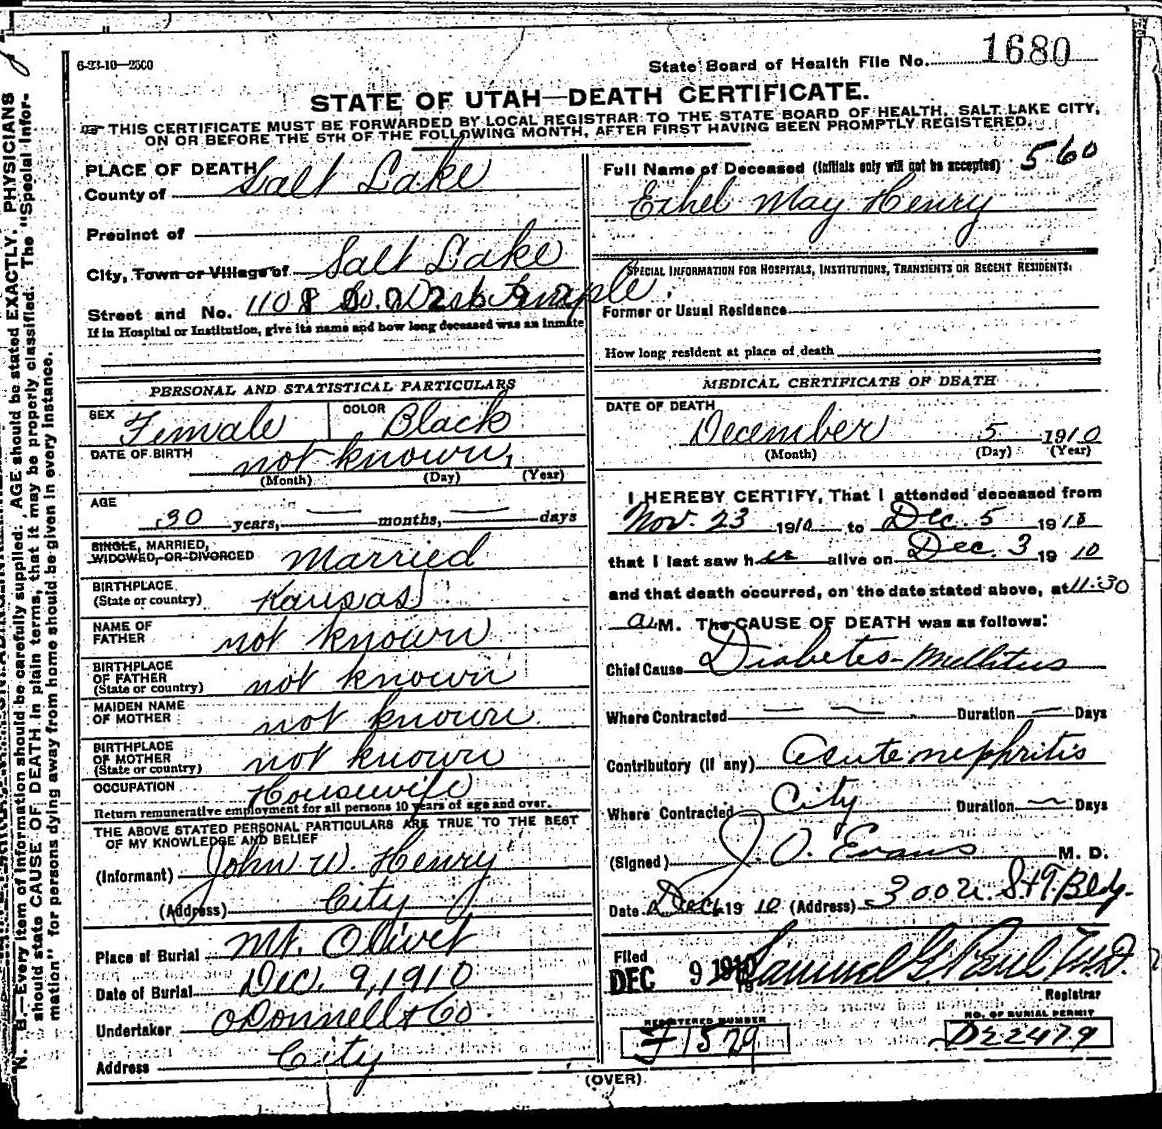 6-23-10—2500
State Board of Health File No. 1680
STATE OF UTAH—DEATH CERTIFICATE.
THIS CERTIFICATE MUST BE FORWARDED BY LOCAL REGISTRAR TO THE STATE BOARD OF HEALTH, SALT LAKE CITY,
ON OR BEFORE THE 5TH OF THE FOLLOWING MONTH, AFTER FIRST HAVING BEEN PROMPTLY REGISTERED.
PLACE OF DEATH
County of Salt Lake
Precinct of
City, Town or Village of Salt Lake
Street and No. 1108 So. West Temple.
If in Hospital or Institution, give its name and how long deceased was an inmate
PERSONAL AND STATISTICAL PARTICULARS
SEX Female COLOR Black
DATE OF BIRTH not known,
(Month) (Day) (Year)
AGE
30 years, — months, — days
SINGLE, MARRIED,
WIDOWED, OR DIVORCED Married
BIRTHPLACE
(State or country) Kansas
NAME OF
FATHER not known
BIRTHPLACE
OF FATHER
(State or country) not known
MAIDEN NAME
OF MOTHER not known.
BIRTHPLACE
OF MOTHER
(State or country) not known
OCCUPATION Housewife
Return remunerative employment for all persons 10 years of age and over.
THE ABOVE STATED PERSONAL PARTICULARS ARE TRUE TO THE BEST
OF MY KNOWLEDGE AND BELIEF
(Informant) John W. Henry
(Address) City
Place of Burial Mt. Olivet
Date of Burial Dec. 9, 1910
Undertaker O'Donnell & Co.
Address City
Full Name of Deceased (initials only will not be accepted) 560
Ethel May Henry
SPECIAL INFORMATION FOR HOSPITALS, INSTITUTIONS, TRANSIENTS OR RECENT RESIDENTS:
Former or Usual Residence
How long resident at place of death
MEDICAL CERTIFICATE OF DEATH
DATE OF DEATH
December 5 1910
(Month) (Day) (Year)
I HEREBY CERTIFY, That I attended deceased from
Nov. 23 1910 to Dec. 5 1910
that I last saw her alive on Dec. 3 19 10
and that death occurred, on the date stated above, at 11:30
a. M. The CAUSE OF DEATH was as follows:
Chief Cause Diabetes-Mellitus
Where Contracted — — . Duration — Days
Contributory (if any) Acute nephritis
Where Contracted City Duration — Days
(Signed) J. O. Evans M. D.
Date Dec 6 19 10 (Address) Bldg.
Filed
DEC 9 1910 Samuel G. Paul M.D.
Registrar
REGISTERED NUMBER
F 1579
NO. OF BURIAL PERMIT
D22479
(OVER)
N. B.—Every item of information should be carefully supplied. AGE should be stated EXACTLY. PHYSICIANS
should state CAUSE OF DEATH in plain terms, that it may be properly classified. The "Special Infor-
mation" for persons dying away from home should be given in every instance.